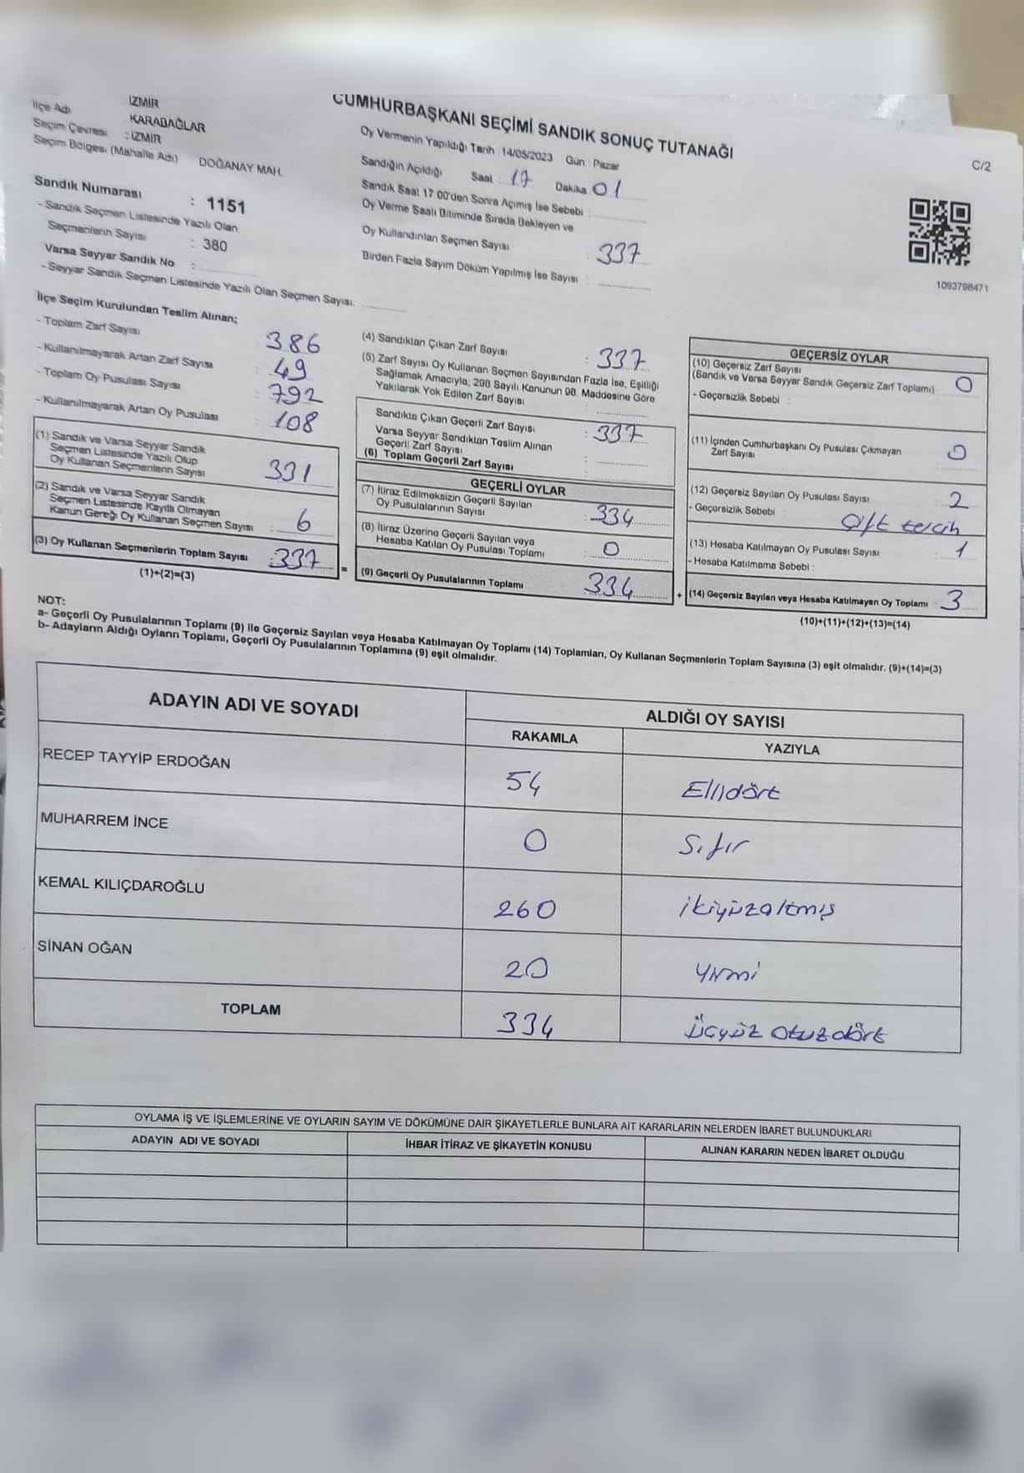 CUMHURBAŞKANI SEÇİMİ SANDIK SONUÇ TUTANAĞI
C/2
İZMİR
İlçe Adı KARABAĞLAR
Seçim Çevresi : İZMİR
Seçim Bölgesi (Mahalle Adı) DOĞANAY MAH.
Sandık Numarası : 1151
- Sandık Seçmen Listesinde Yazılı Olan
Seçmenlerin Sayısı : 380
Varsa Seyyar Sandık No :
- Seyyar Sandık Seçmen Listesinde Yazılı Olan Seçmen Sayısı
Oy Vermenin Yapıldığı Tarih 14/05/2023 Gün : Pazar
Sandığın Açıldığı Saat : 17 Dakika 01
Sandık Saat 17:00'den Sonra Açımış İse Sebebi
Oy Verme Saati Bitiminde Sırada Bekleyen ve
Oy Kullandırılan Seçmen Sayısı 337
Birden Fazla Sayım Döküm Yapılmış İse Sayısı
1093798471
İlçe Seçim Kurulundan Teslim Alınan;
- Toplam Zarf Sayısı 386
- Kullanılmayarak Artan Zarf Sayısı 49
- Toplam Oy Pusulası Sayısı 792
- Kullanılmayarak Artan Oy Pusulası 108
(1) Sandık ve Varsa Seyyar Sandık
Seçmen Listesinde Yazılı Olup
Oy Kullanan Seçmenlerin Sayısı 331
(2) Sandık ve Varsa Seyyar Sandık
Seçmen Listesinde Kayıtlı Olmayan
Kanun Gereği Oy Kullanan Seçmen Sayısı 6
(3) Oy Kullanan Seçmenlerin Toplam Sayısı 337
(1)+(2)=(3)
=
(4) Sandıktan Çıkan Zarf Sayısı : 337
(5) Zarf Sayısı Oy Kullanan Seçmen Sayısından Fazla İse, Eşitliği
Sağlamak Amacıyla, 298 Sayılı Kanunun 98. Maddesine Göre
Yakılarak Yok Edilen Zarf Sayısı
Sandıkta Çıkan Geçerli Zarf Sayısı : 337
Varsa Seyyar Sandıktan Teslim Alınan
Geçerli Zarf Sayısı
(6) Toplam Geçerli Zarf Sayısı
GEÇERLİ OYLAR
(7) İtiraz Edilmeksizin Geçerli Sayılan
Oy Pusulalarının Sayısı : 334
(8) İtiraz Üzerine Geçerli Sayılan veya
Hesaba Katılan Oy Pusulası Toplamı 0
(9) Geçerli Oy Pusulalarının Toplamı 334
+
GEÇERSİZ OYLAR
(10) Geçersiz Zarf Sayısı
(Sandık ve Varsa Seyyar Sandık Geçersiz Zarf Toplamı) 0
- Geçersizlik Sebebi :
(11) İçinden Cumhurbaşkanı Oy Pusulası Çıkmayan
Zarf Sayısı 0
(12) Geçersiz Sayılan Oy Pusulası Sayısı 2
- Geçersizlik Sebebi : Çift tercih
(13) Hesaba Katılmayan Oy Pusulası Sayısı 1
- Hesaba Katılmama Sebebi :
(14) Geçersiz Sayılan veya Hesaba Katılmayan Oy Toplamı 3
(10)+(11)+(12)+(13)=(14)
NOT:
a- Geçerli Oy Pusulalarının Toplamı (9) ile Geçersiz Sayılan veya Hesaba Katılmayan Oy Toplamı (14) Toplamları, Oy Kullanan Seçmenlerin Toplam Sayısına (3) eşit olmalıdır. (9)+(14)=(3)
b- Adayların Aldığı Oyların Toplamı, Geçerli Oy Pusulalarının Toplamına (9) eşit olmalıdır.
ADAYIN ADI VE SOYADI ALDIĞI OY SAYISI
RAKAMLA YAZIYLA
RECEP TAYYİP ERDOĞAN 54 Ellidört
MUHARREM İNCE 0 Sıfır
KEMAL KILIÇDAROĞLU 260 ikiyüzaltmış
SİNAN OĞAN 20 Yirmi
TOPLAM 334 Üçyüz otuzdört
OYLAMA İŞ VE İŞLEMLERİNE VE OYLARIN SAYIM VE DÖKÜMÜNE DAİR ŞİKAYETLERLE BUNLARA AİT KARARLARIN NELERDEN İBARET BULUNDUKLARI
ADAYIN ADI VE SOYADI İHBAR İTİRAZ VE ŞİKAYETİN KONUSU ALINAN KARARIN NEDEN İBARET OLDUĞU